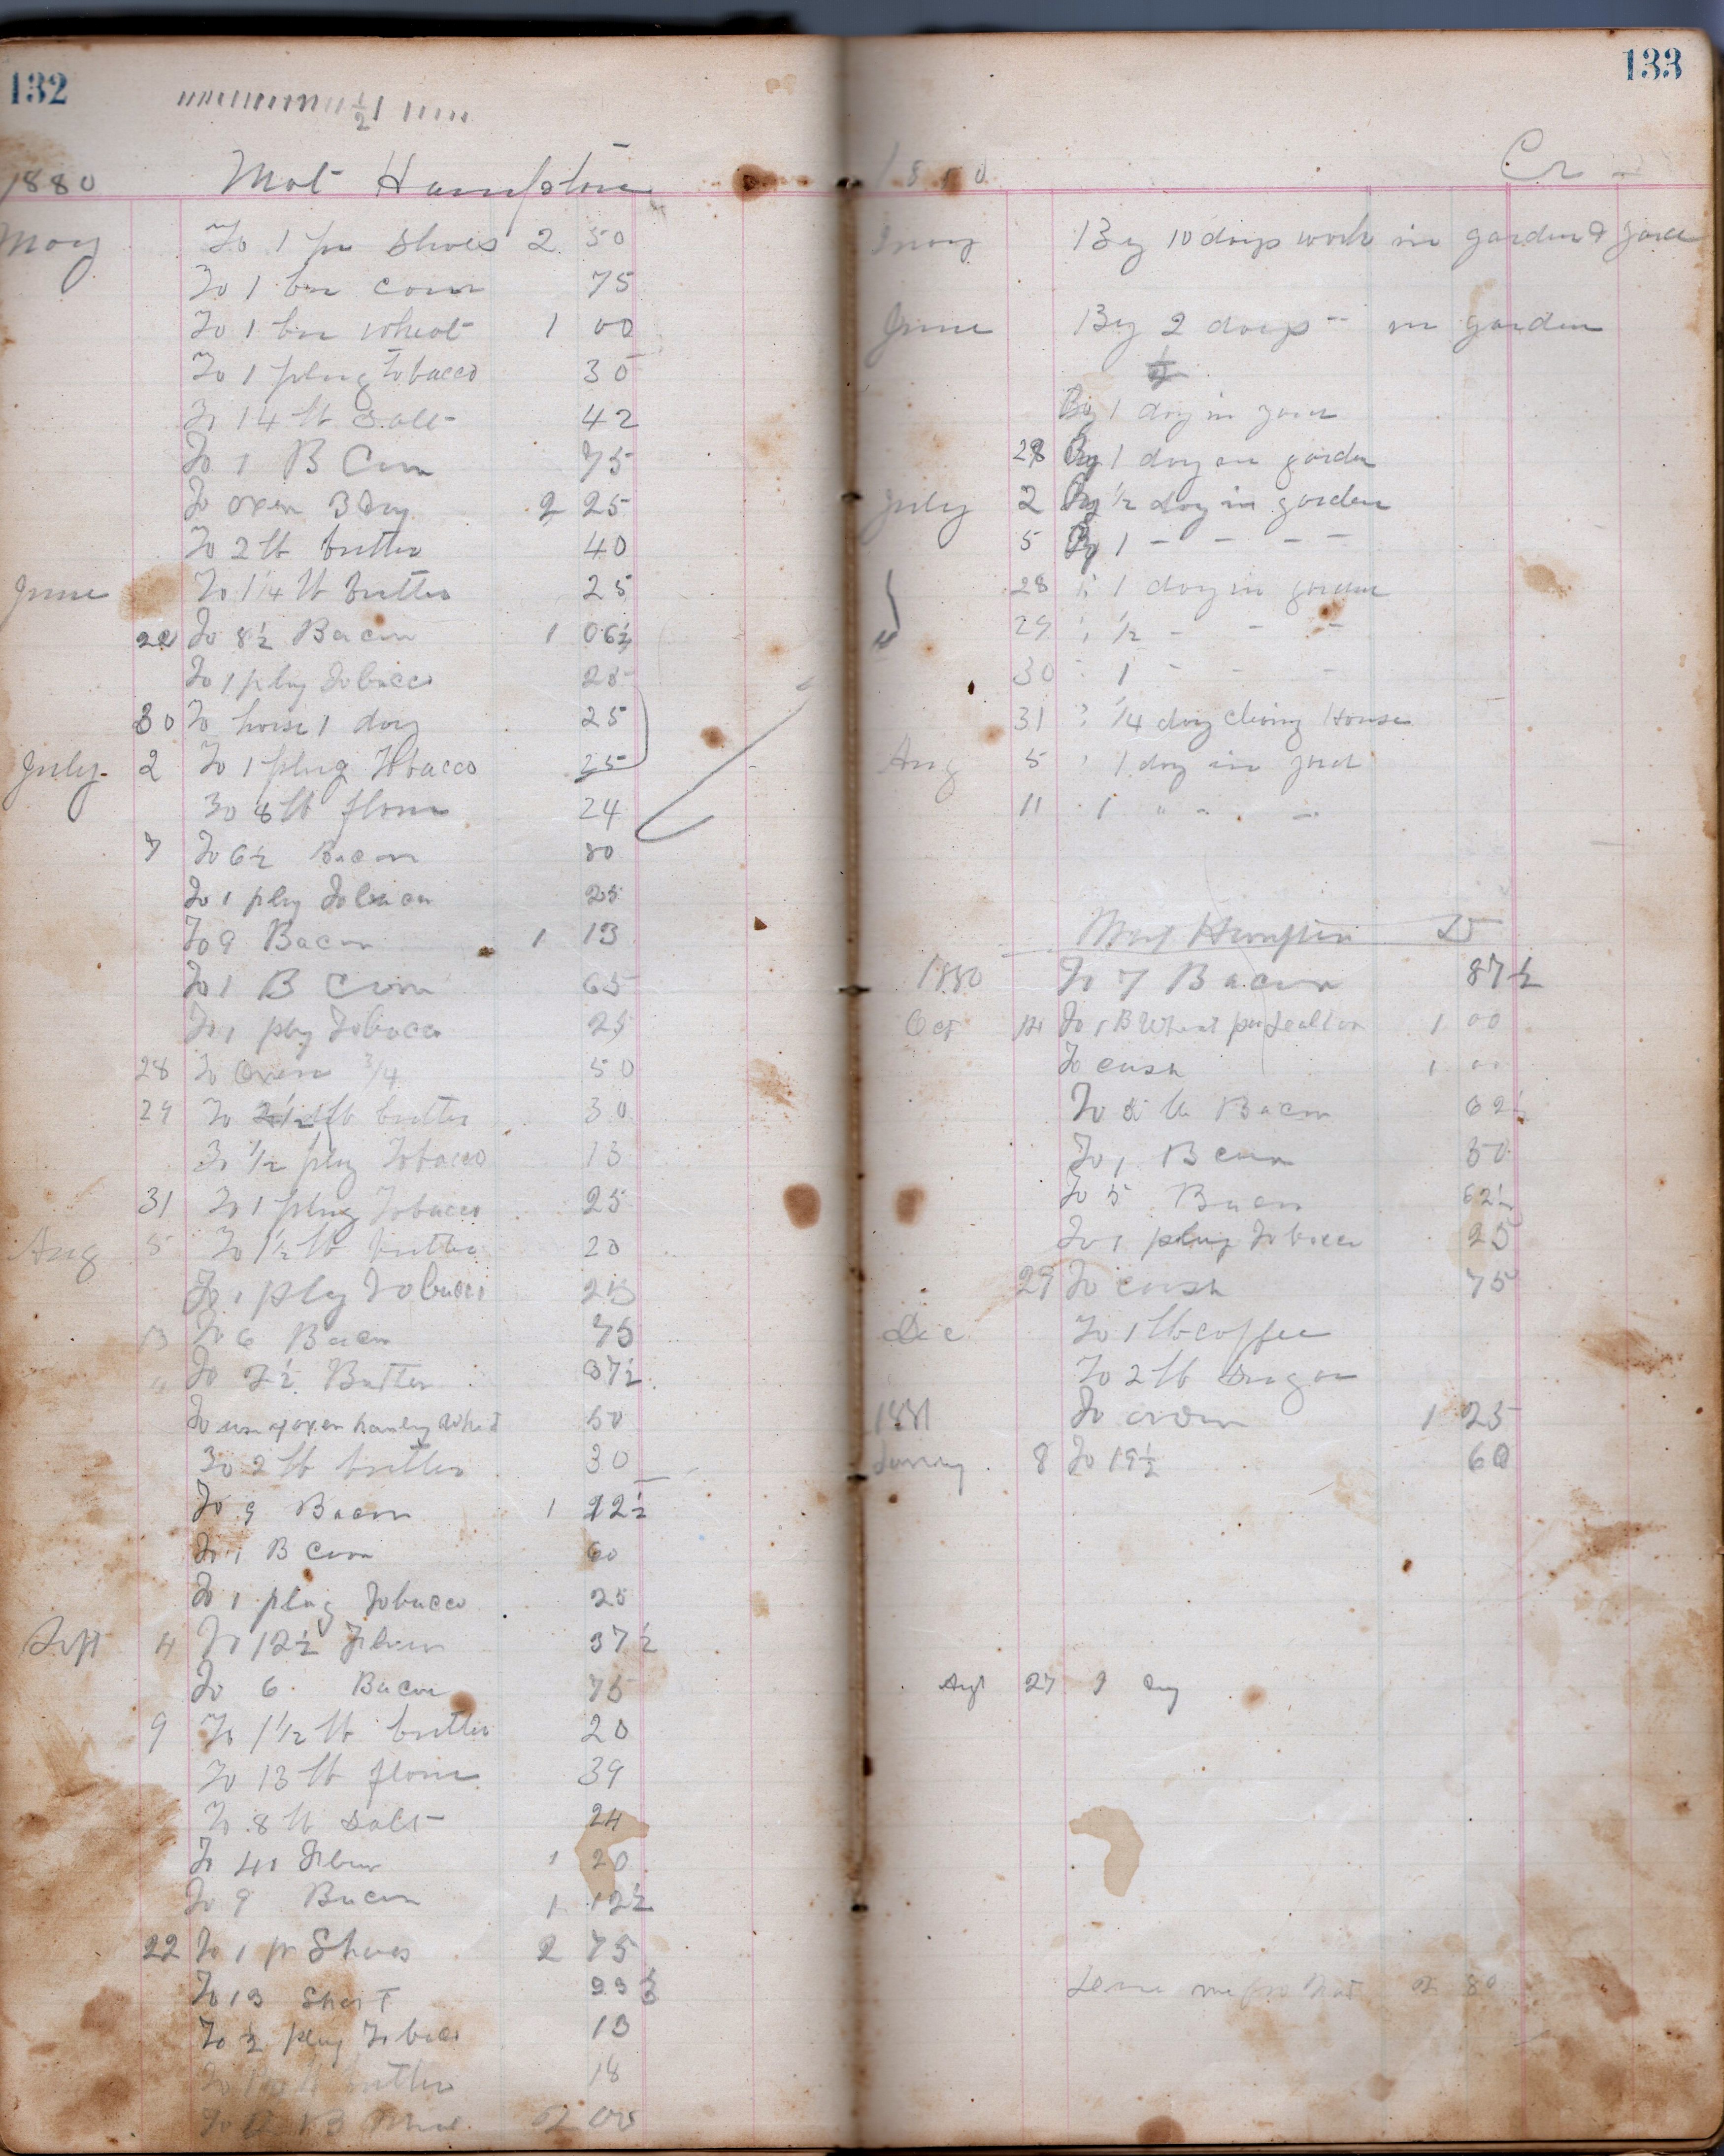 132
1880 Mat Hampton
May To 1 pr Shoes 2 50
To 1 bu corn 75
To 1 bu wheat 1 00
To 1 plug tobacco 30
To 14 lb Salt 42
To 1 B Corn 75
To oxen 3 Day 2 25
To 2 lb butter 40
June To 1 1/4 lb butter 25
22 To 8½ Bacon 1 06¼
To 1 plug Tobacco 25
30 To horse 1 day 25
July 2 To 1 plug Tobacco 25
To 8 lb flour 24
7 To 6½ Bacon 80
To 1 plug Tobacco 25
To 9 Bacon 1 13
To 1 B Corn 65
To 1 plug Tobacco 25
28 To Oxen 3/4 50
29 To lb butter 30
To ½ plug Tobacco 13
31 To 1 plug Tobacco 25
Aug 5 To 1½ lb butter 20
To 1 plug Tobacco 25
13 To 6 Bacon 75
" To 2½ Butter 37½
To use of oxen 50
To 2 lb butter 30
To 9 Bacon 1 12½
To 1 B Corn 60
To 1 plug Tobacco 25
Sept 4 To 12½ Flour 37½
To 6 Bacon 75
9 To 1½ lb butter 20
To 13 lb flour 39
To 8 lb Salt 24
To 40 Flour 1 20
To 9 Bacon 1 12½
22 To 1 pr Shoes 2 75
To 13
To ½ plug Tobacco 13
To butter 18
To B 2 00
133
1880 Cr
May By 10 days work in garden & yard
June By 2 days " in garden
By 1 day in yard
28 By 1 day in garden
July 2 By ½ day in garden
5 By 1 - - - -
28 " 1 day in garden
29 " ½ - - -
30 " 1 - - -
31 " 1/4 day House
Aug 5 " 1 day in yard
11 " 1 " " "
Hampton Dr
1880 To 7 Bacon 87½
Oct To 1 B Wheat 1 00
To cash 1 00
To 5 lb Bacon 62½
To 1 B corn 50
To 5 Bacon 62½
To 1 plug Tobacco 25
29 To cash 75
Dec To 1 lb coffee
To 2 lb Sugar
1881 To 1 25
January 8 To 19½ 60
27 Day
80